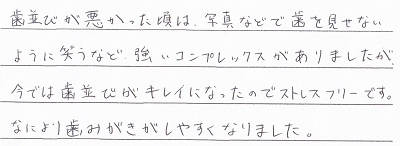 歯並びが悪かった頃は、写真などで歯を見せない
ように笑うなど、強いコンプレックスがありましたが、
今では歯並びがキレイになったのでストレスフリーです。
なにより歯みがきがしやすくなりました。